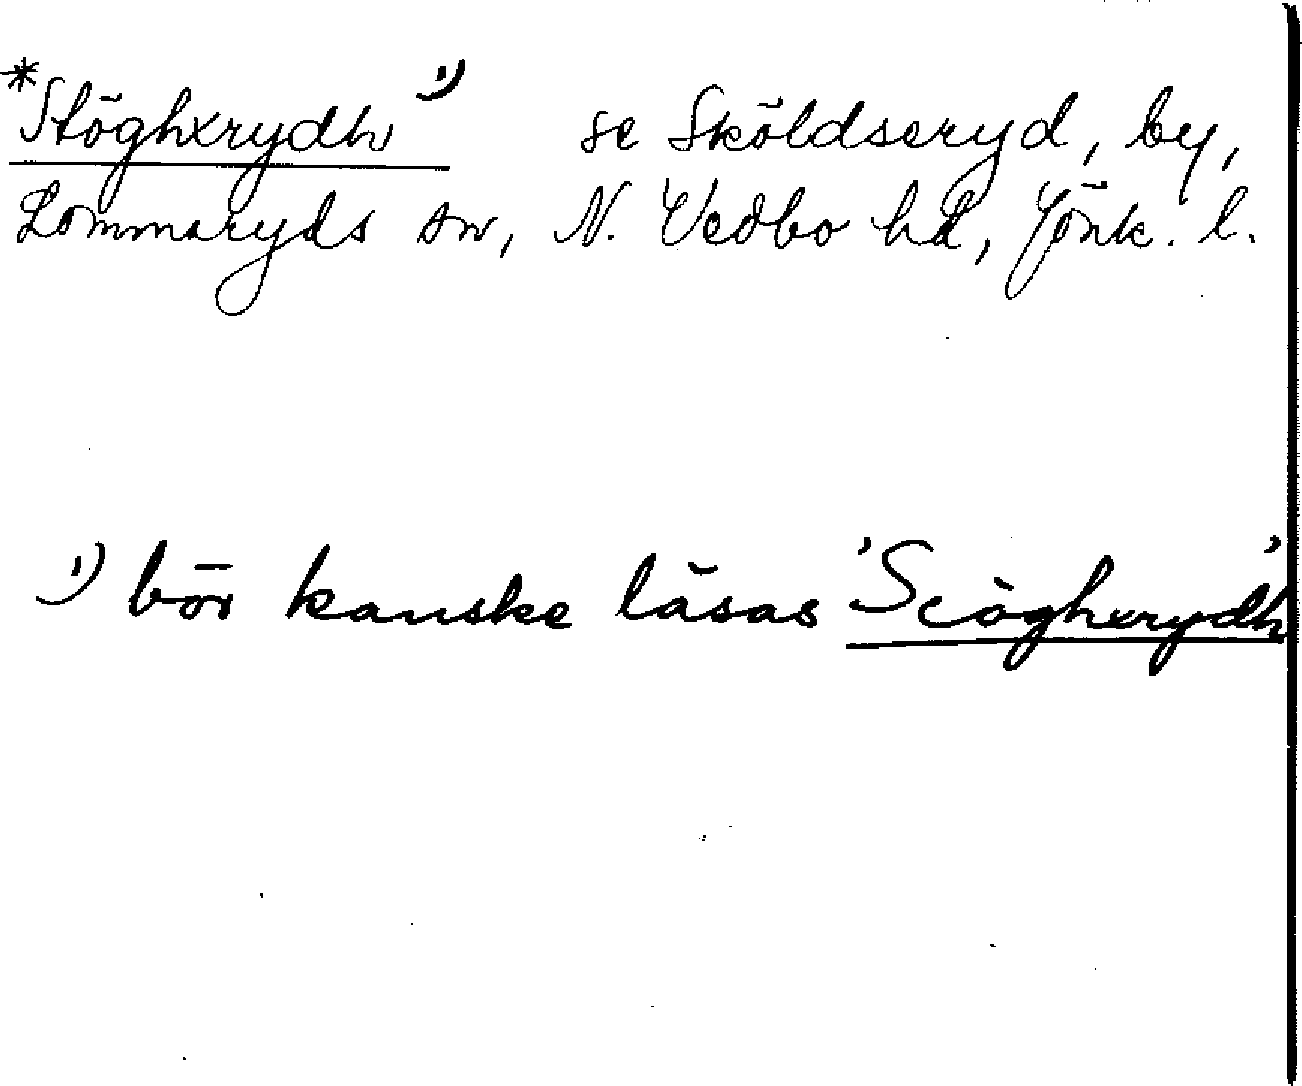 *Stöghxrydh ¹) se Sköldseryd, by,
Lommaryds sn, N. Vedbo hd, Jönk. l.
¹) bör kanske läsas 'Scöghxrydh'